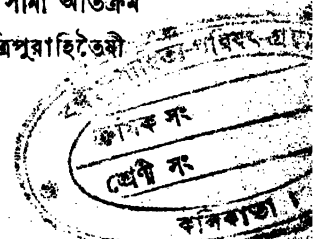 সীমা অতিক্রম
ত্রিপুরাহিতৈষী
পরিষৎ
ক্রমিক সং
শ্রেণী সং
কলিকাতা ।